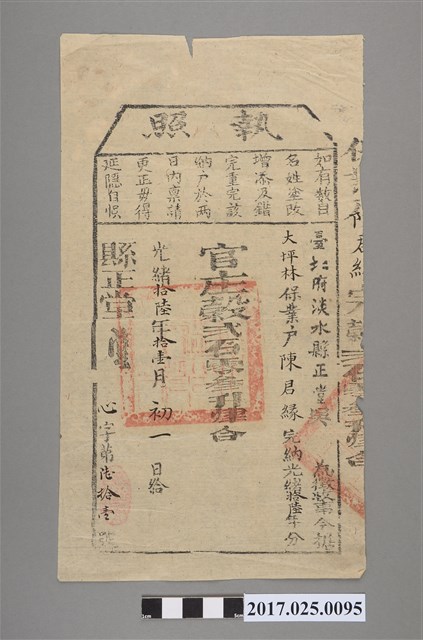 執照
如有數目
名姓塗改
增添及錯
完重完該
納户於兩
日內稟請
更正毋得
延隱自悞
臺北府淡水縣正堂 為徵收事今據
大坪林保業户陳君緣完納光緒拾陸年分
官庄穀貳石零叁升肆合
光緒拾陸年拾壹月初一日給
縣正堂
心字第陸拾壹號
1cm
2017.025.0095